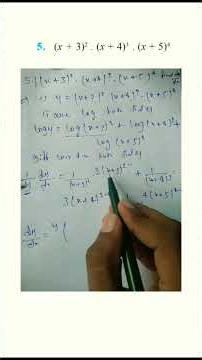 5. (x + 3)² . (x + 4)³ . (x + 5)⁴
5. (x+3)² . (x+4)³ . (x+5)⁴
y = (x+3)² (x+4)³ . (x+5)⁴
log both sides
logy = log(x+3)² + log(x+4)³ +
log(x+5)⁴
both sides
1/y dy/dx = 1/(x+3)² 2(x+3)²⁻¹ + 1/(x+4)³
3(x+4)³⁻¹ 4(x+5)⁴⁻
dy/dx = y (